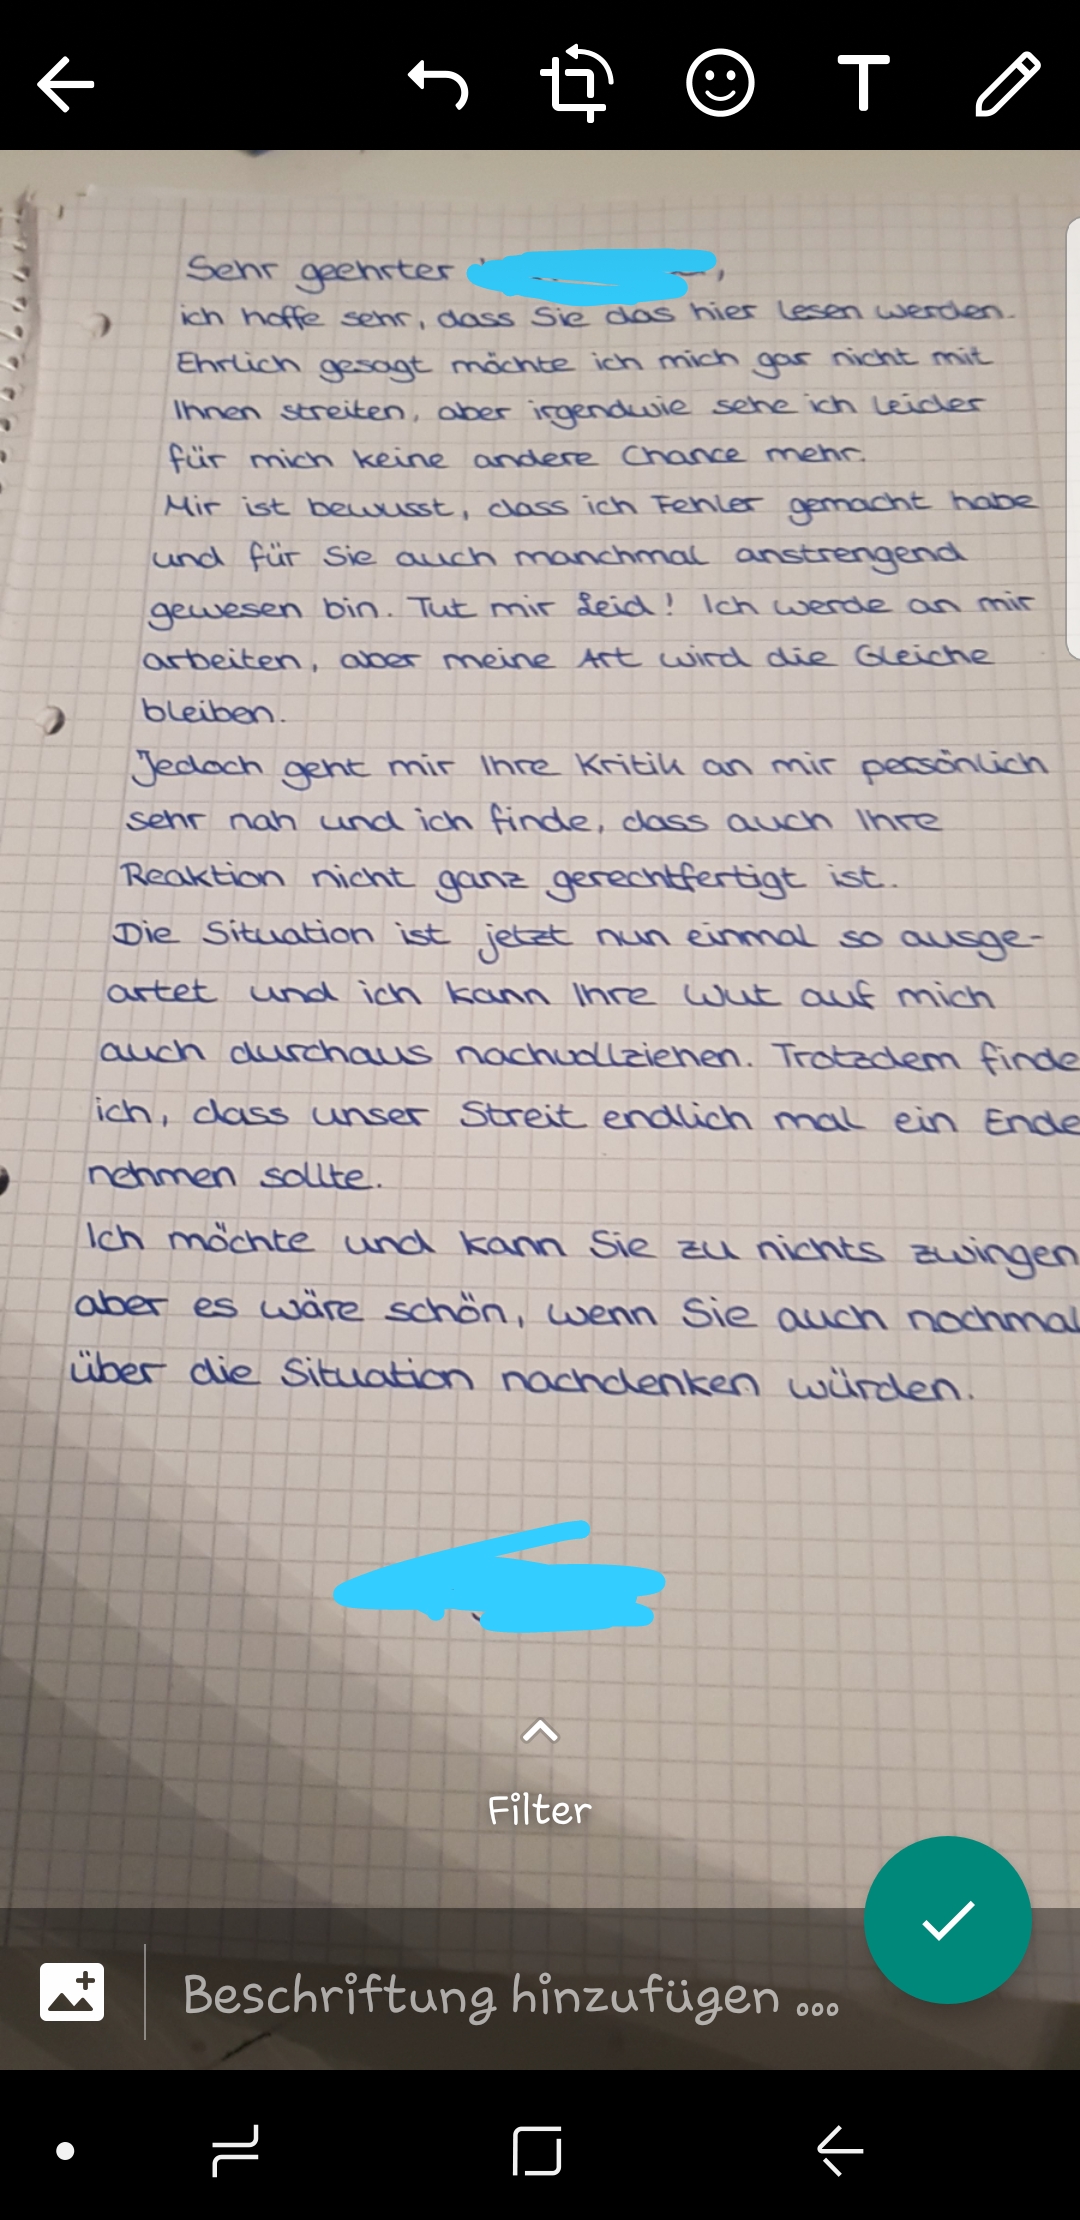 T
Sehr geehrter
ich hoffe sehr, dass Sie das hier lesen werden.
Ehrlich gesagt möchte ich mich gar nicht mit
Ihnen streiten, aber irgendwie sehe ich leider
für mich keine andere Chance mehr.
Mir ist bewusst, dass ich Fehler gemacht habe
und für Sie auch manchmal anstrengend
gewesen bin. Tut mir Leid! Ich werde an mir
arbeiten, aber meine Art wird die Gleiche
bleiben.
Jedoch geht mir Ihre Kritik an mir persönlich
sehr nah und ich finde, dass auch Ihre
Reaktion nicht ganz gerechtfertigt ist.
Die Situation ist jetzt nun einmal so ausge-
artet und ich kann Ihre Wut auf mich
auch durchaus nachvollziehen. Trotzdem finde
ich, dass unser Streit endlich mal ein Ende
nehmen sollte.
Ich möchte und kann Sie zu nichts zwingen
aber es wäre schön, wenn Sie auch nochmal
über die Situation nachdenken würden.
Filter
Beschriftung hinzufügen ...